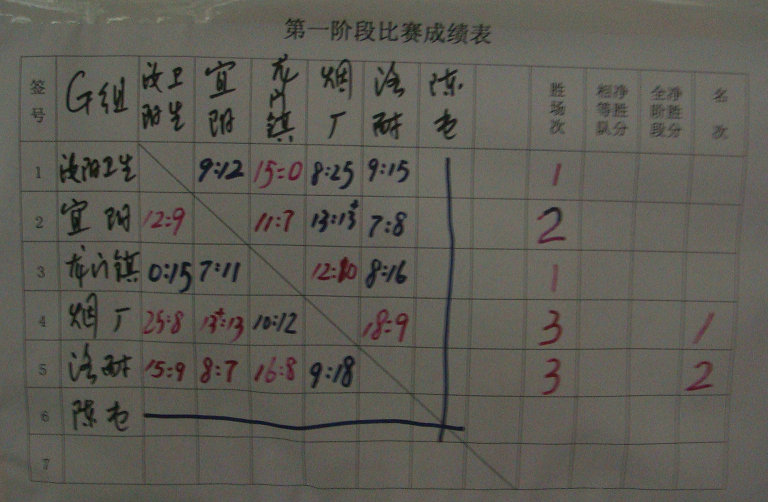 第一阶段比赛成绩表
签号 G组 汝阳卫生 宜阳 龙门镇 烟厂 洛耐 陈屯 胜场次 相等队净胜分 全阶段净胜分 名次
1 汝阳卫生 9:12 15:0 8:25 9:15 1
2 宜阳 12:9 11:7 13:13+ 7:8 2
3 龙门镇 0:15 7:11 12:10 8:16 1
4 烟厂 25:8 13+:13 10:12 18:9 3 1
5 洛耐 15:9 8:7 16:8 9:18 3 2
6 陈屯
7